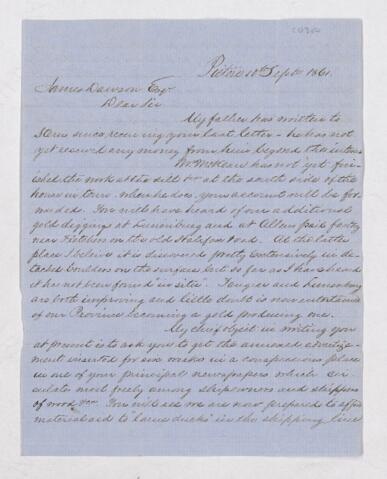 Pictou 10th Sept 1861.
James Dawson Esqr
Dear Sir
My father has written to
since receiving your last letter - he has not
yet received any money from him beyond the interest
Mr McKean has not yet fin-
ished the work at the sill &c at the south side of the
house in town, when he does, your account will be for-
warded. You will have heard of our additional
gold diggings at Lunenburg and at Allen's
near on the old Halifax road. At the latter
place I believe it is discovered pretty extensively in de-
tached boulders on the surface, but so far as I have heard
it has not been found "in situ". Tangier and Lunenburg
are both improving and little doubt is now entertained
of our Province becoming a gold producing one.
My chief object in writing you
at present is to ask you to get the annexed advertize-
ment inserted for six weeks in a conspicuous place
in one of your principal newspapers which cir-
culates most freely among shipowners and shippers
of wood &c. You will see we are now prepared to afford
material aid to "lame ducks" in the shipping line